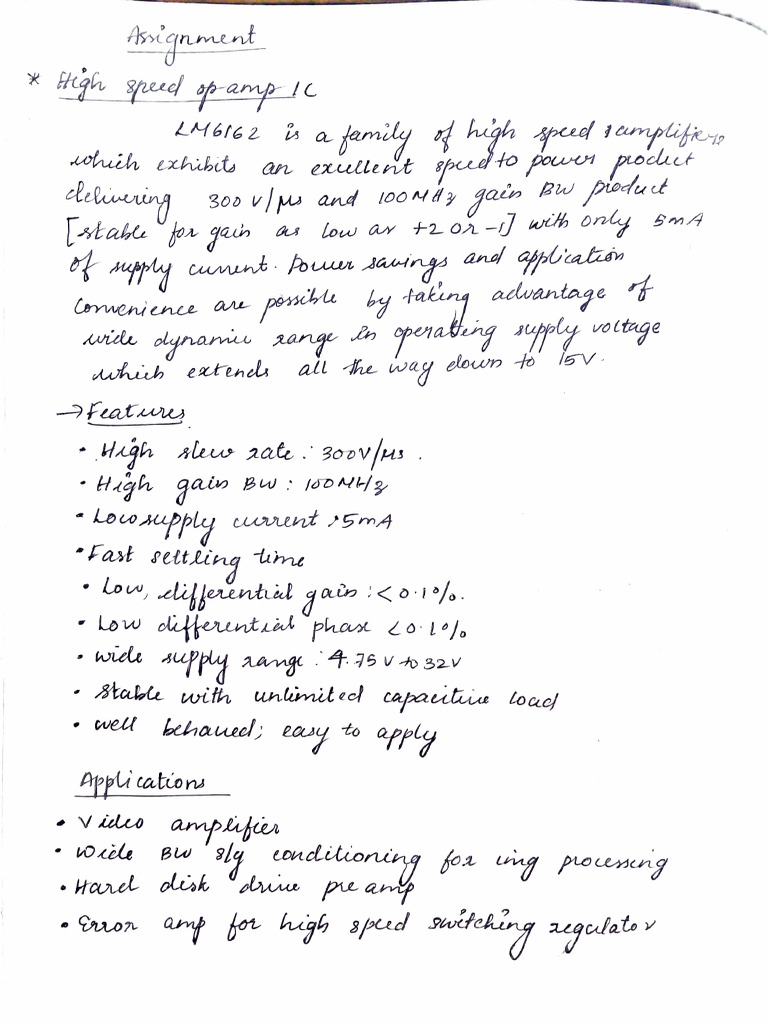 Assignment
* High speed op-amp IC
LM6162 is a family of high speed amplifiers,
which exhibits an excellent speed to power product
delivering 300 V/μs and 100MHz gain BW product
[stable for gain as low as +2 or -1] with only 5mA
of supply current. Power savings and application
convenience are possible by taking advantage of
wide dynamic range in operating supply voltage
which extends all the way down to 15V.
→ Features
• High slew rate : 300V/μs.
• High gain BW : 100MHz
• Low supply current : 5mA
• Fast settling time
• Low, differential gain : < 0.1%.
• Low differential phase < 0.1%
• wide supply range : 4.75V to 32V
• stable with unlimited capacitive load
• well behaved; easy to apply
Applications
• Video amplifier
• Wide BW s/g conditioning for img processing
• Hard disk drive pre amp
• Error amp for high speed switching regulator